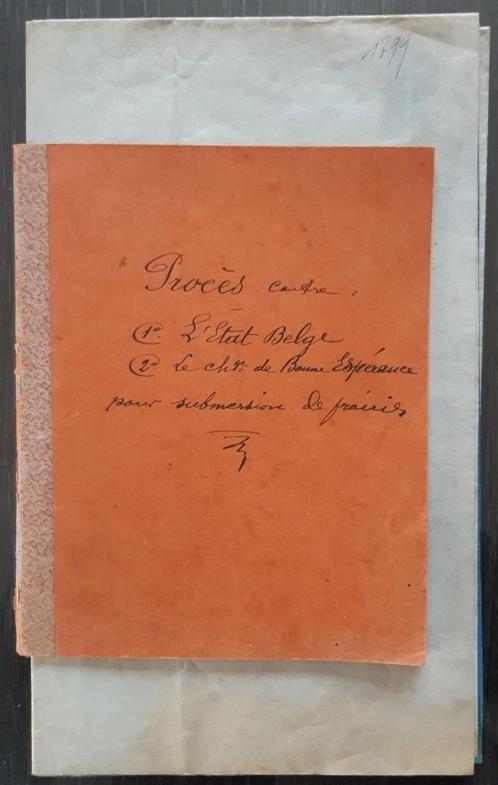 1899
Procès contre :
1º. L'Etat Belge
2º Le chge. de Bonne Espérance
pour submersion de prairies